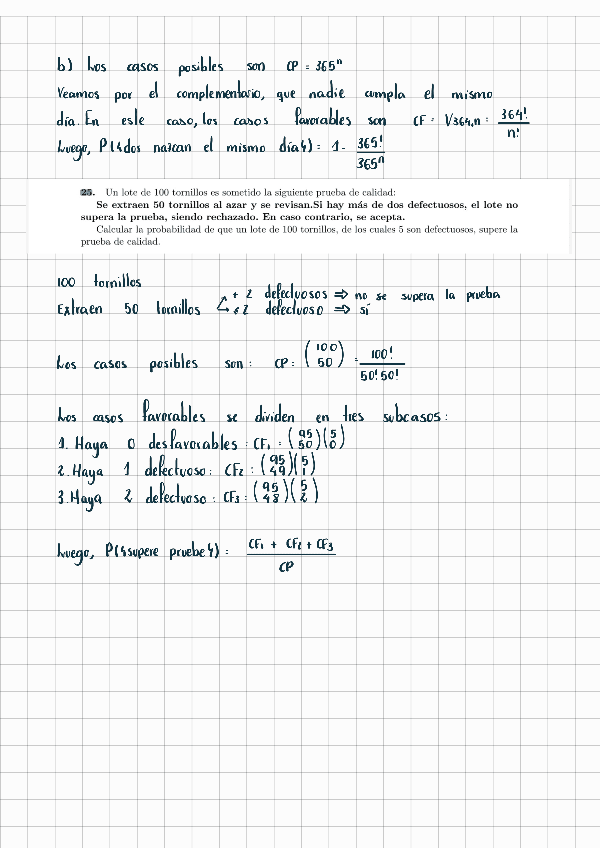 b) Los casos posibles son CP = 365ⁿ
Veamos por el complementario, que nadie cumpla el mismo
día. En este caso, los casos favorables son CF = V364,n = 364! / n!
Luego, P({dos nazcan el mismo día}) = 1 - 365! / 365ⁿ
25. Un lote de 100 tornillos es sometido la siguiente prueba de calidad:
Se extraen 50 tornillos al azar y se revisan.Si hay más de dos defectuosos, el lote no
supera la prueba, siendo rechazado. En caso contrario, se acepta.
Calcular la probabilidad de que un lote de 100 tornillos, de los cuales 5 son defectuosos, supere la
prueba de calidad.
100 tornillos
+ 2 defectuosos ⇒ no se supera la prueba
Extraen 50 tornillos ≤ 2 defectuoso ⇒ sí
Los casos posibles son: CP = (100 50) = 100! / 50! 50!
Los casos favorables se dividen en tres subcasos:
1. Haya 0 desfavorables: CF₁ = (95 50)(5 0)
2. Haya 1 defectuoso: CF₂ = (95 49)(5 1)
3. Haya 2 defectuoso: CF₃ = (95 48)(5 2)
Luego, P({supere pruebe}) = CF₁ + CF₂ + CF₃ / CP